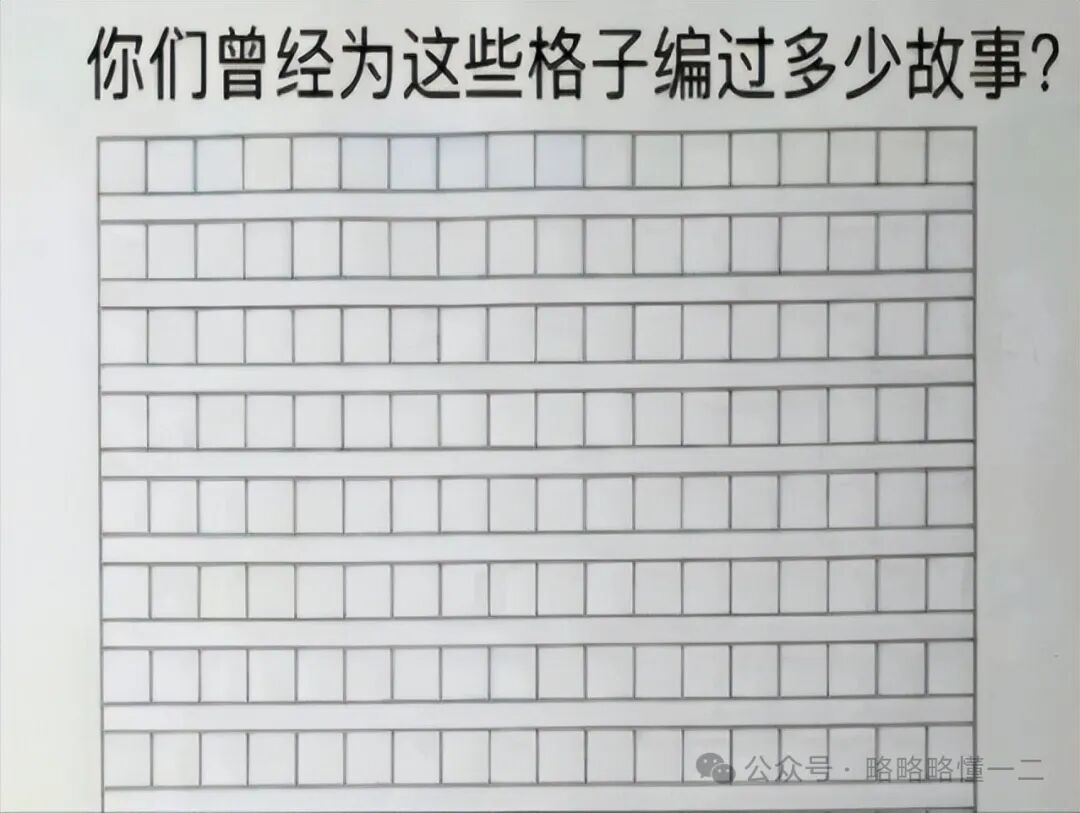 你们曾经为这些格子编过多少故事?
公众号·略略略懂一二